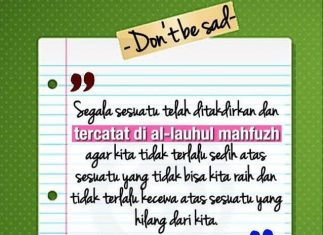 - Don't be sad -
"
Segala sesuatu telah ditakdirkan dan
tercatat di al-lauhul mahfuzh
agar kita tidak terlalu sedih atas
sesuatu yang tidak bisa kita raih dan
tidak terlalu kecewa atas sesuatu yang
hilang dari kita.
"